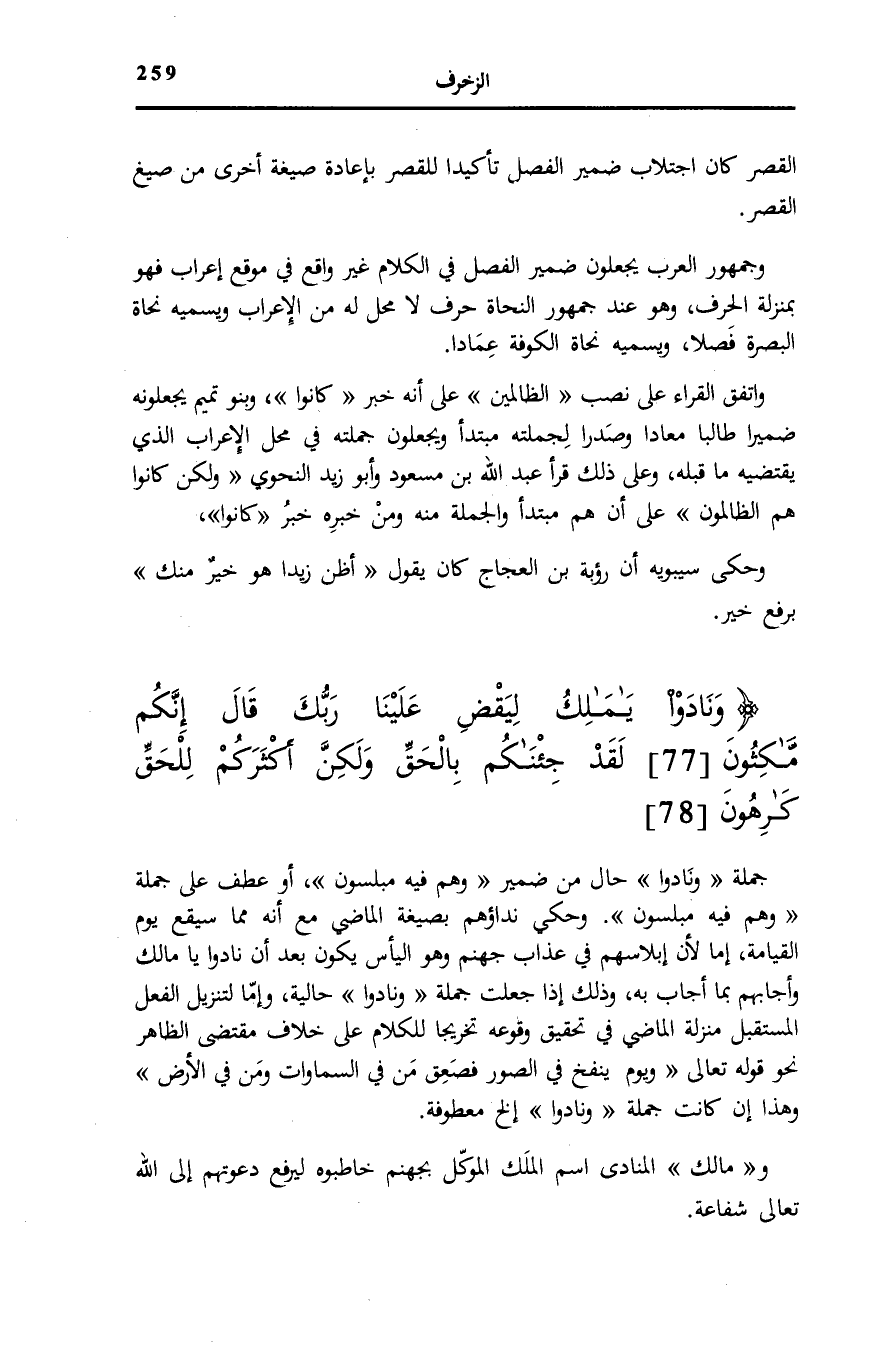 الزخرف 259
القصر كان اجتلاب ضمير الفصل تأكيدا للقصر بإعادة صيغة أخرى من صيغ
القصر.
وجمهور العرب يجعلون ضمير الفصل في الكلام غير واقع في موقع إعراب فهو
بمنزلة الحرف، وهو عند جمهور النحاة حرف لا محل له من الإعراب ويسميه نحاة
البصرة فَصلا، ويسميه نحاة الكوفة عِمَادا.
واتفق القراء على نصب « الظالمين » على أنه خبر « كانوا »، وبنو تميم يجعلونه
ضميرا طالبا معادا وصَدرا لِجملته مبتدأ ويجعلون جملته في محل الإعراب الذي
يقتضيه ما قبله، وعلى ذلك قرأ عبد الله بن مسعود وأبو زيد النحوي « ولكن كانوا
هم الظالمون » على أن هم مبتدأ والجملة منه ومنْ خبرِه خبرُ «كانوا»،
وحكى سيبويه أن رؤبة بن العجاج كان يقول « أظن زيدا هو خيرٌ منك »
برفع خير.
﴿ وَنَادَوْاْ يَـٰمَـٰلِكُ لِيَقْضِ عَلَيْنَا رَبُّكَ قَالَ إِنَّكُم
مَّـٰكِثُونَ [77] لَقَدْ جِئْنَـٰكُم بِالْحَقِّ وَلَكِنَّ أَكْثَرَكُمْ لِلْحَقِّ
كَـٰرِهُونَ [78]
جملة « ونَادوا » حال من ضمير « وهم فيه مبلسون »، أو عطف على جملة
« وهم فيه مبلسون ». وحكي نداؤهم بصيغة الماضي مع أنه مما سيقع يوم
القيامة، إما لأن إبلاسهم في عذاب جهنم وهو اليأس يكون بعد أن نادوا يا مالك
وأجابهم بما أجاب به، وذلك إذا جعلت جملة « ونادوا » حالية، وإمّا لتنزيل الفعل
المستقبل منزلة الماضي في تحقيق وقوعه تخريجا للكلام على خلاف مقتضى الظاهر
نحو قوله تعالى « ويوم ينفخ في الصور فصَعِق مَن في السماوات ومَن في الأرض »
وهذا إن كانت جملة « ونادوا » إلخ معطوفة.
و« مالك » المنادى اسم الملَك الموكّل بجهنم خاطبوه ليرفع دعوتهم إلى الله
تعالى شفاعة.